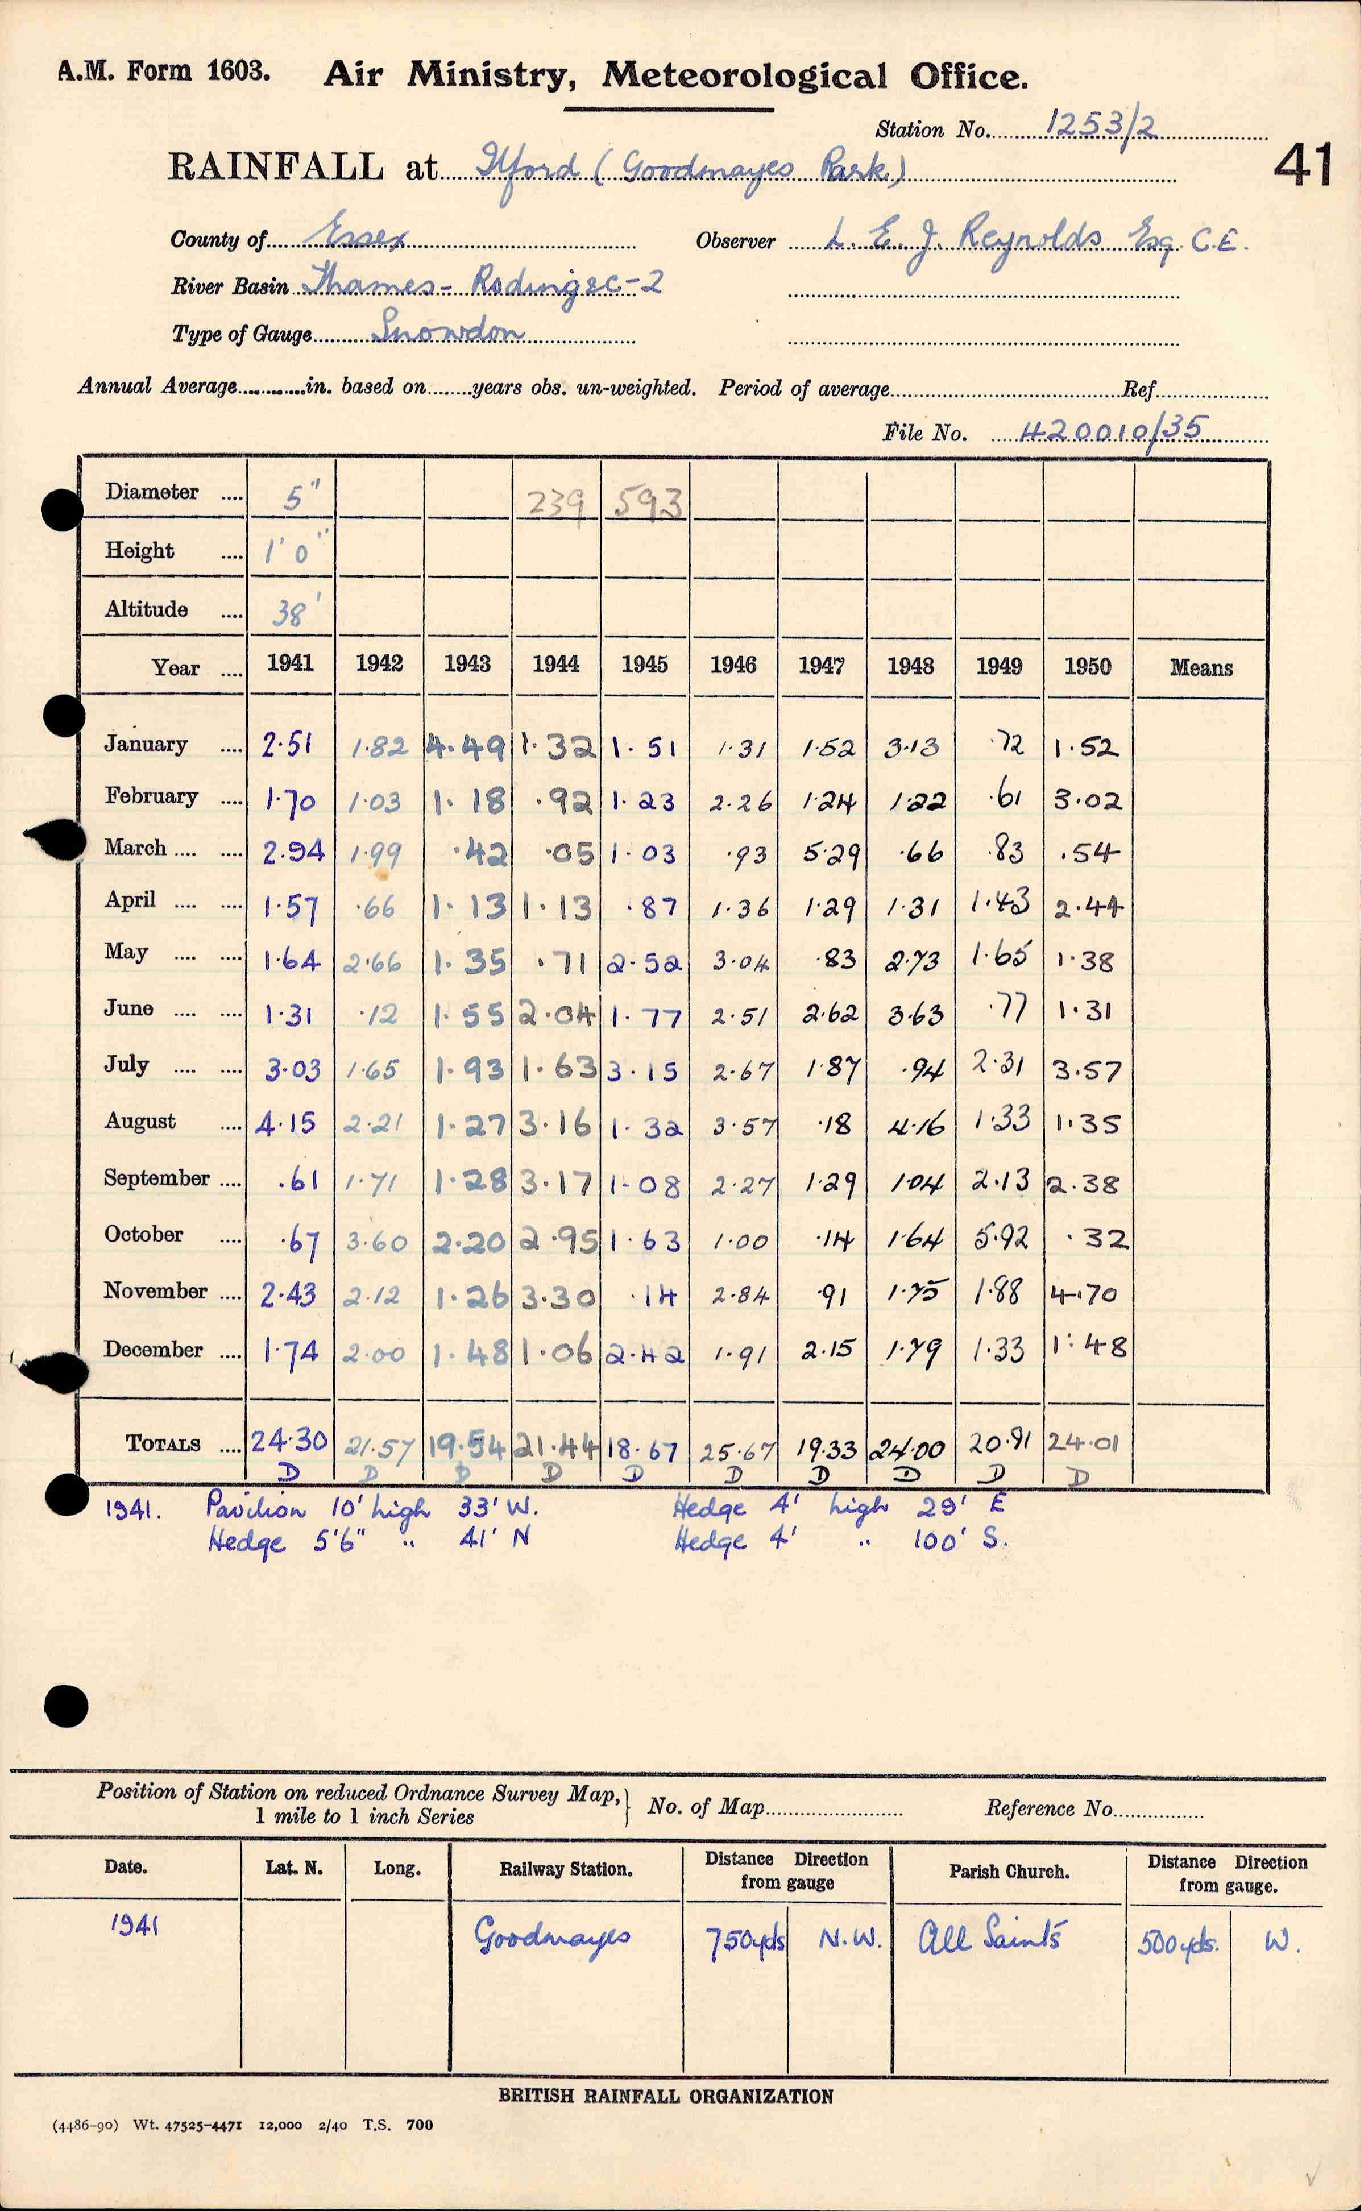 A.M. Form 1603. Air Ministry, Meteorological Office.
Station No. 1253/2
41
RAINFALL at Ilford (Goodmayes Park)
County of Essex Observer L. E. J. Reynolds Esq. C.E.
River Basin Thames - Roding &c - 2
Type of Gauge Snowdon
Annual Average in. based on years obs. un-weighted. Period of average Ref
File No. 420010/35
Diameter .... 5" 239 593
Height .... 1' 0"
Altitude .... 38'
Year .... 1941 1942 1943 1944 1945 1946 1947 1948 1949 1950 Means
January .... 2.51 1.82 4.49 1.32 1.51 1.31 1.52 3.13 .72 1.52
February .... 1.70 1.03 1.18 .92 1.23 2.26 1.24 1.22 .61 3.02
March .... .... 2.94 1.99 .42 .05 1.03 .93 5.29 .66 .83 .54
April .... .... 1.57 .66 1.13 1.13 .87 1.36 1.29 1.31 1.43 2.44
May .... .... 1.64 2.66 1.35 .71 2.52 3.04 .83 2.73 1.65 1.38
June .... .... 1.31 .12 1.55 2.04 1.77 2.51 2.62 3.63 .77 1.31
July .... .... 3.03 1.65 1.93 1.63 3.15 2.67 1.87 .94 2.31 3.57
August .... 4.15 2.21 1.27 3.16 1.32 3.57 .18 4.16 1.33 1.35
September .... .61 1.71 1.28 3.17 1.08 2.27 1.29 1.04 2.13 2.38
October .... .67 3.60 2.20 2.95 1.63 1.00 .14 1.64 5.92 .32
November .... 2.43 2.12 1.26 3.30 .14 2.84 .91 1.75 1.88 4.70
December .... 1.74 2.00 1.48 1.06 2.42 1.91 2.15 1.79 1.33 1.48
TOTALS .... 24.30 21.57 19.54 21.44 18.67 25.67 19.33 24.00 20.91 24.01
D D D D D D D D D D
1941. Pavilion 10' high 33' W. Hedge 4' high 29' E
Hedge 5'6" " 41' N Hedge 4' " 100' S.
Position of Station on reduced Ordnance Survey Map, } No. of Map Reference No.
1 mile to 1 inch Series
Date. Lat. N. Long. Railway Station. Distance from gauge Direction Parish Church. Distance from gauge. Direction
1941 Goodmayes 750yds N.W. All Saints 500yds. W.
BRITISH RAINFALL ORGANIZATION
(4486-90) Wt. 47525-4471 12,000 2/40 T.S. 700